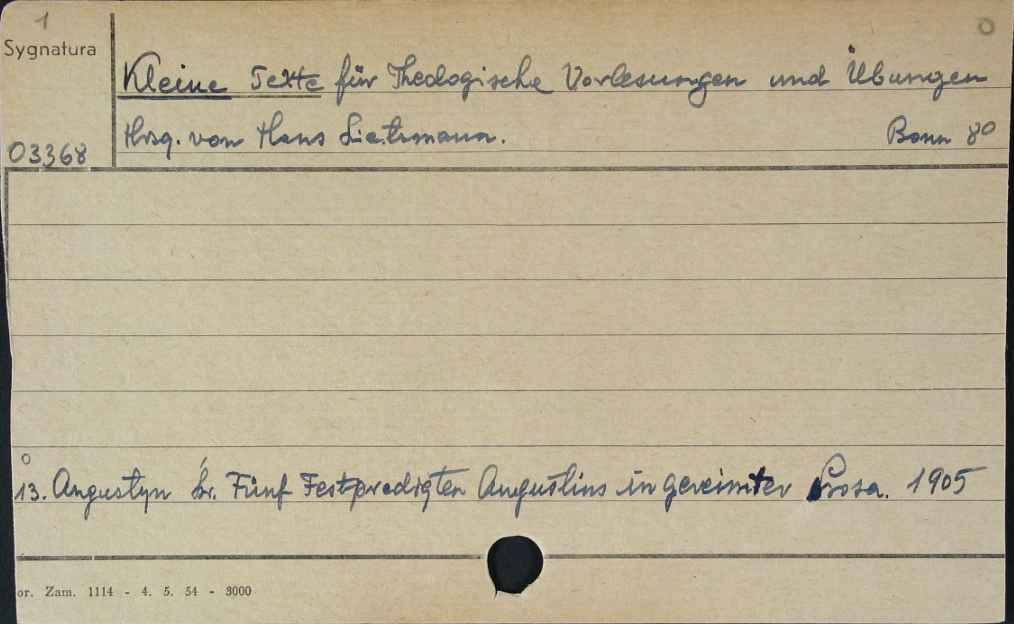 1
o
Sygnatura
Kleine Texte für Theologische Vorlesungen und Übungen
Hrsg. von Hans Lietzmann. Bonn 8o
03368
o
13. Augustyn św. Fünf Festpredigten Augustins in gereimter Prosa. 1905
or. Zam. 1114 - 4. 5. 54 - 3000